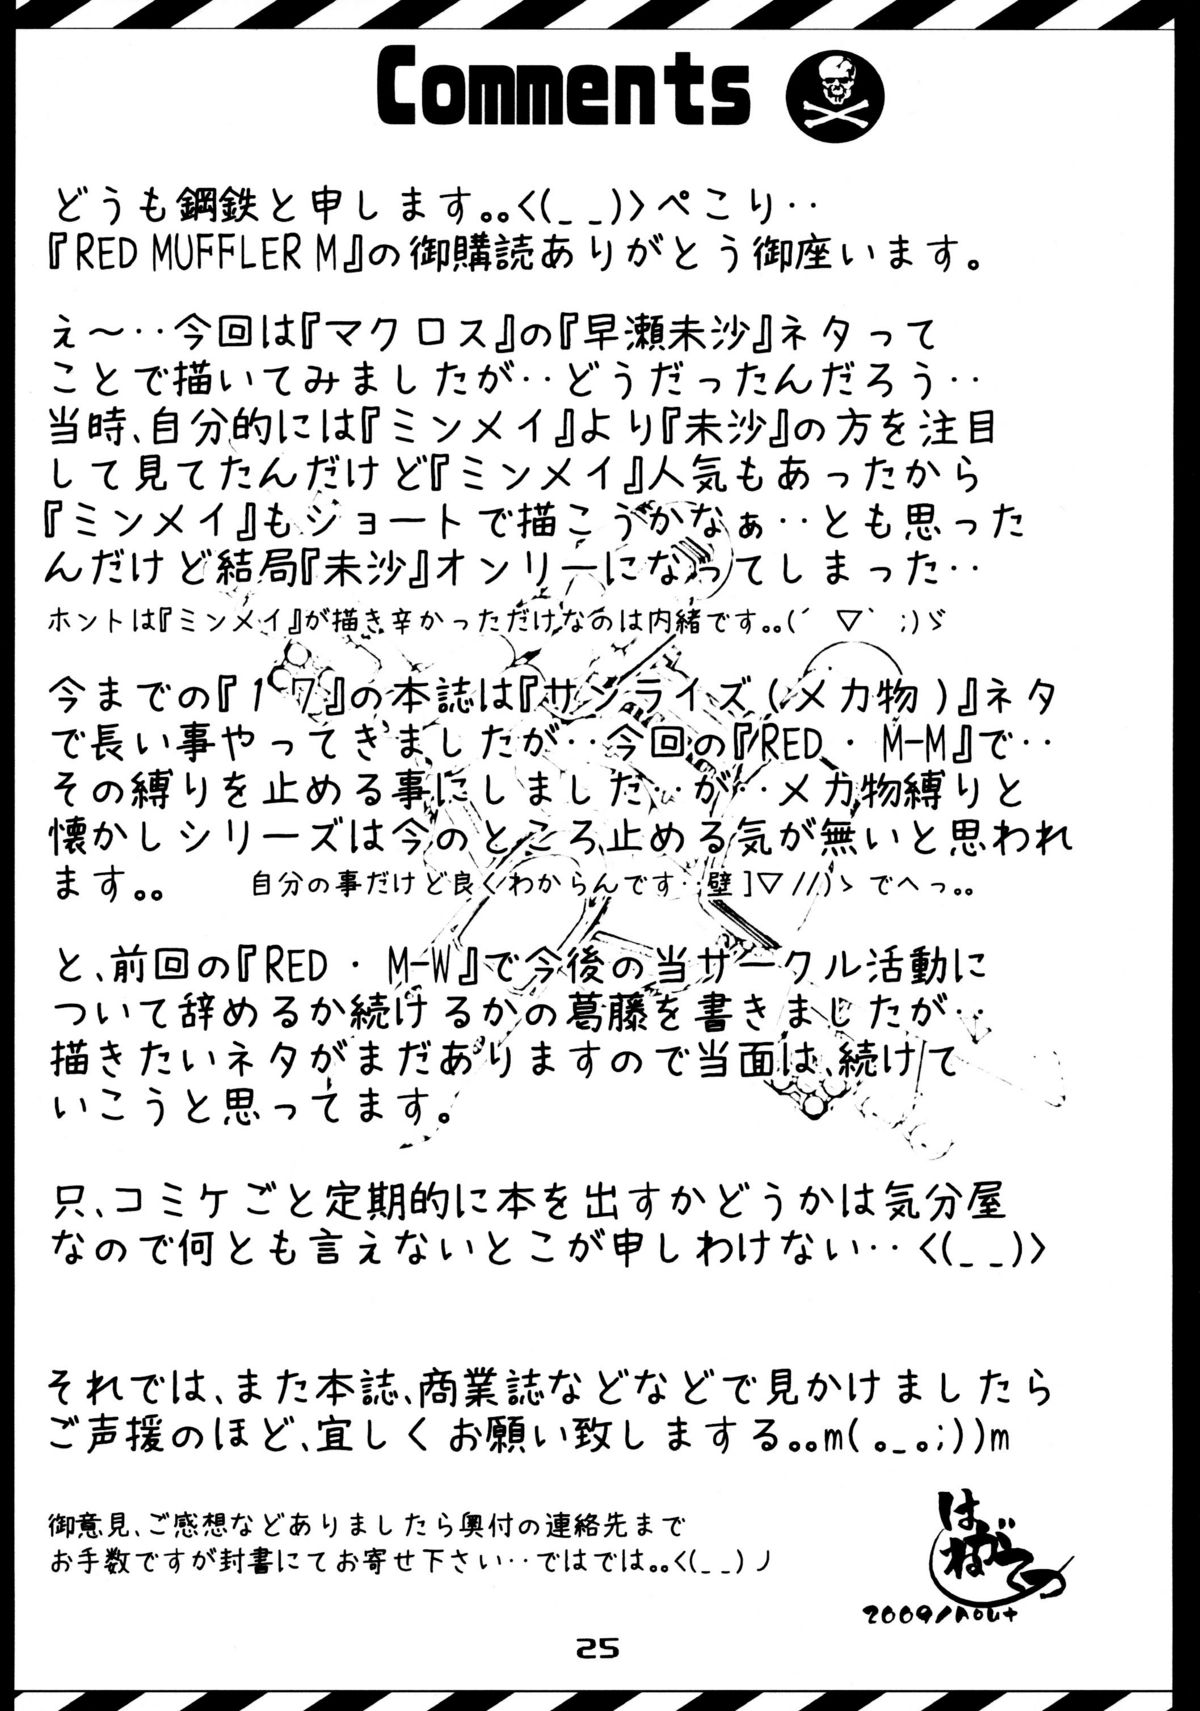 Comments
どうも鋼鉄と申します。。<(_ _)>ぺこり‥
『RED MUFFLER M』の御購読ありがとう御座います。
え～‥今回は『マクロス』の『早瀬未沙』ネタって
ことで描いてみましたが‥どうだったんだろう‥
当時、自分的には『ミンメイ』より『未沙』の方を注目
して見てたんだけど『ミンメイ』人気もあったから
『ミンメイ』もショートで描こうかなぁ‥とも思った
んだけど結局『未沙』オンリーになってしまった‥
ホントは『ミンメイ』が描き辛かっただけなのは内緒です。。(´▽｀;)ゞ
今までの『1・7』の本誌は『サンライズ(メカ物)』ネタ
で長い事やってきましたが‥今回の『RED・M-M』で‥
その縛りを止める事にしました‥が‥メカ物縛りと
懐かしシリーズは今のところ止める気が無いと思われ
ます。。 自分の事だけど良くわからんです‥壁]▽//)ゝでへっ。。
と、前回の『RED・M-W』で今後の当サークル活動に
ついて辞めるか続けるかの葛藤を書きましたが‥
描きたいネタがまだありますので当面は、続けて
いこうと思ってます。
只、コミケごと定期的に本を出すかどうかは気分屋
なので何とも言えないとこが申しわけない‥<(_ _)>
それでは、また本誌、商業誌などなどで見かけましたら
ご声援のほど、宜しくお願い致しまする。。m(。_。;))m
御意見、ご感想などありましたら奥付の連絡先まで
お手数ですが封書にてお寄せ下さい‥ではでは。。<(_ _)ノ
はがねてつ
25